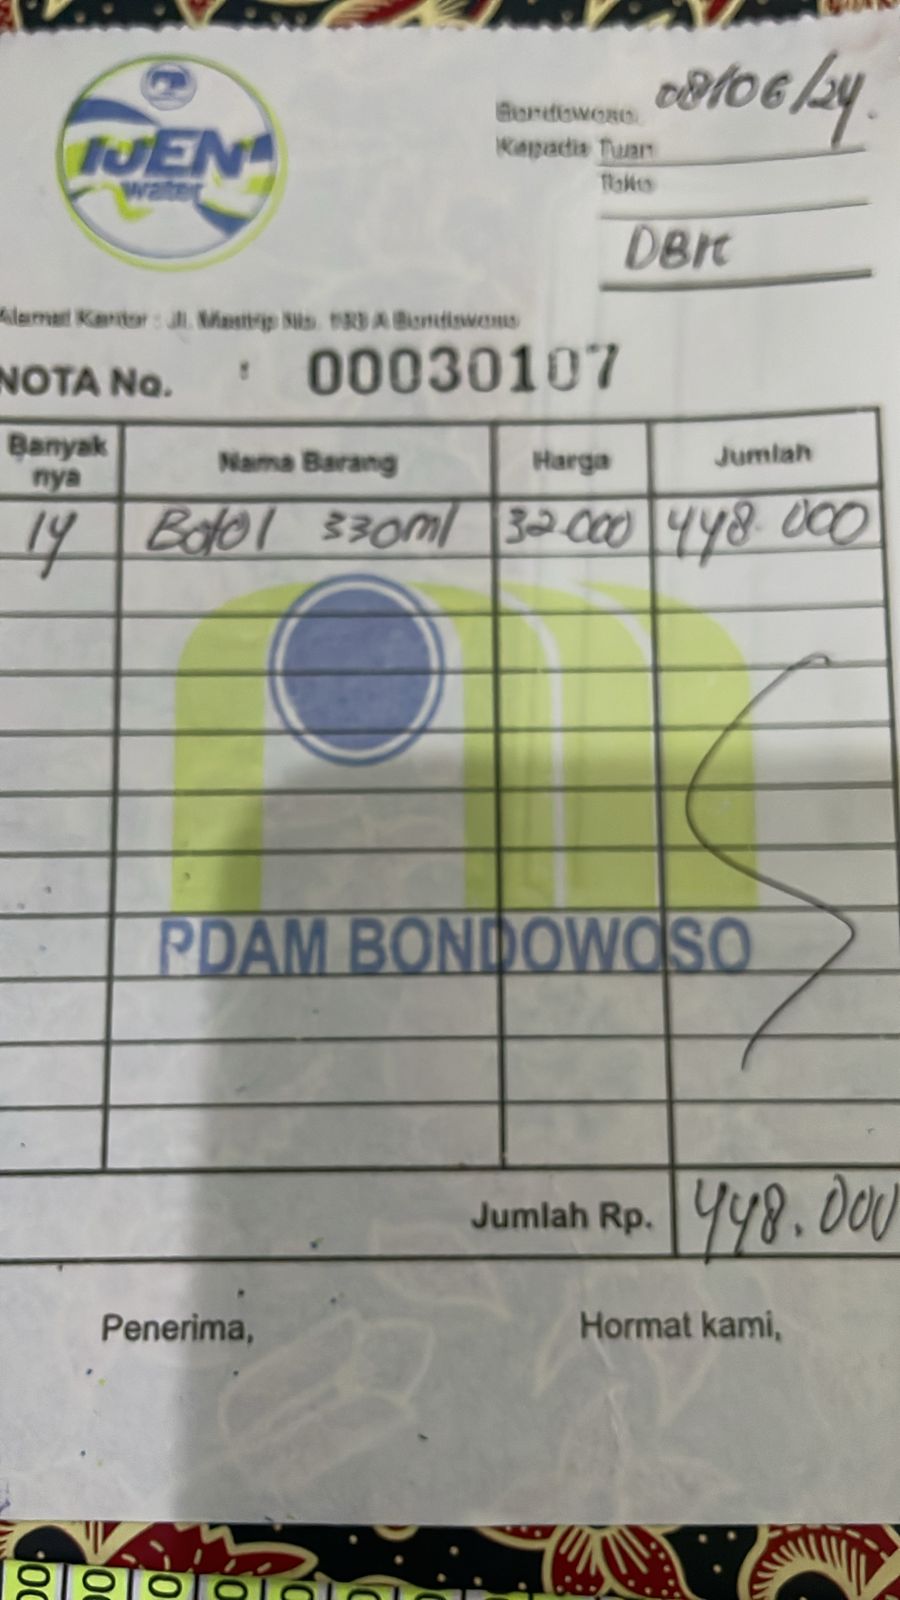 IJEN
water
Bondowoso, 08/06/24.
Kepada Tuan
Toko
DBK
Alamat Kantor : Jl. Mastrip No. A Bondowoso
NOTA No. : 00030107
Banyak nya Nama Barang Harga Jumlah
14 Botol 330ml 32.000 448.000
PDAM BONDOWOSO
Jumlah Rp. 448.000
Penerima, Hormat kami,